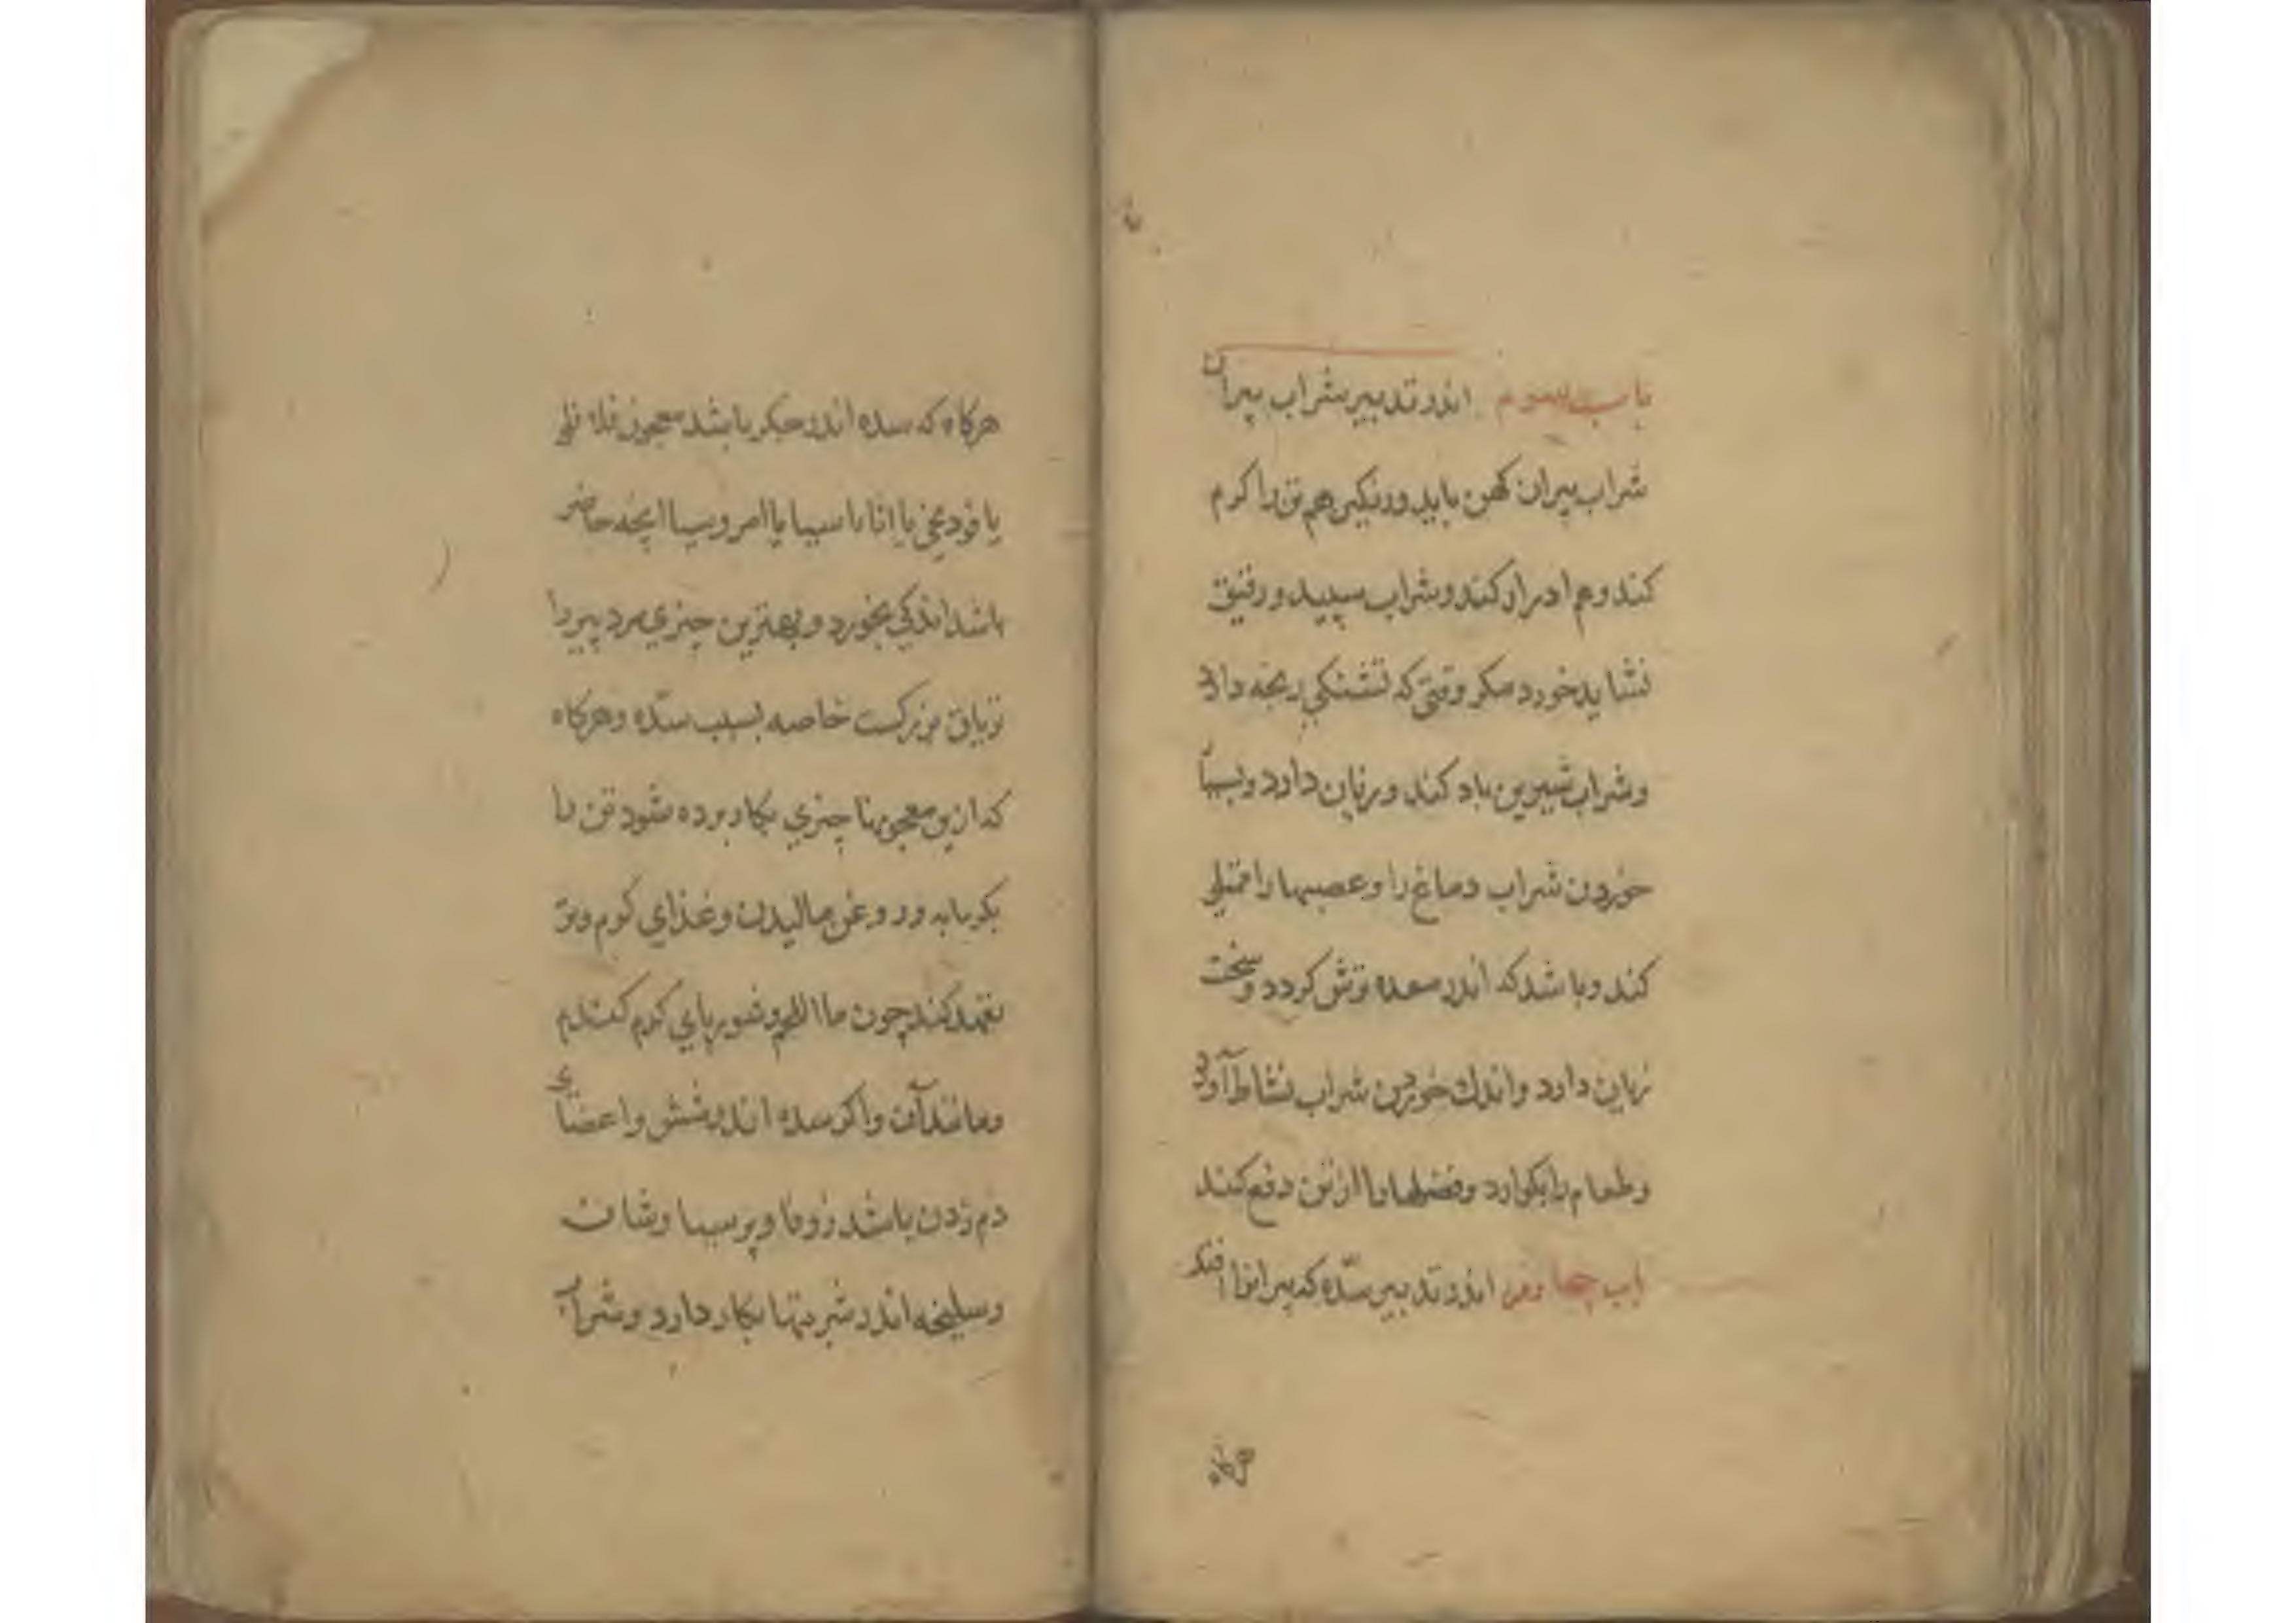 باب سوم اندر تدبیر شراب پیران
شراب پیران کهن باید و رنکین هم تن را کرم
کند و هم ادرار کند و شراب سپید و رقیق
نشاید خورد مکر وقتی که تشنکی رنجه دارد
و شراب شیرین باد کند و زیان دارد و بسیار
خوردن شراب دماغ را و عصبها را ممتلی
کند و باشد که اندر معده ترش کردد و سخت
زیان دارد و اندك خوردن شراب نشاط آورد
و طعام را بکوارد و فضلها را از تن دفع کند
باب چهارم اندر تدبیر سده که پیرانرا افتد
هرکاه که سده اندر جکر باشد معجون فلافلی
یا فودنجی یا اثاناسیا یا امروسیا آنچه حاضر
باشد اندکی بخورد و بهترین چیزی مرد پیر را
تریاق بزرکست خاصه بسبب سدّه و هرکاه
که ازین معجونها چیزی بکار برده شود تن را
بکرمابه و روغن مالیدن و غذای کرم و تر
تعهد کند چون ماا اللحم و شوربای کرم کندم
و مانند آن و اکر سده اندر شش و اعضای
دم زدن باشد زوفا و پرسیا وشان
و سلیخه اندر شربتها بکار دارد و شراب